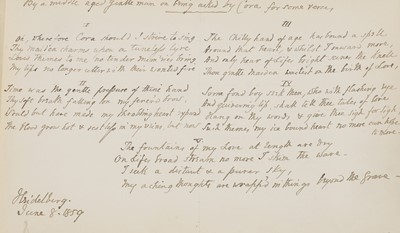 By a middle aged Gentle man on being asked by Cora for some verses,
I
Oh, Cora should I strive to sing
Thy maiden charms upon a tuneless lyre
Love to me no tender visions bring
My lips no longer with
II
Time was the gentle pressure of thine hand
Thy soft breath falling on my brow
Would but have made my throbbing heart expand
The blood flow hot & restless in my veins, but now
III
The chilly hand of age has bound a spell
Around that heart, & what of inward more,
And only hour of life might make the knell
Then gentle maiden in the birth of Love,
IV
Some fond boy seek then, who with flashing eye
And quivering lip shall tell thee tales of love
Hang on thy words, & give thee sigh for sigh,
Such themes, my ice bound heart no more can
to move.
V
The fountains of my Love at length are dry
On Life's broad stream no more I stem the wave
I seek a distant & a purer sky,
My aching thoughts are wrapp'd in things beyond the grave —
Heidelberg.
June 8. 1859